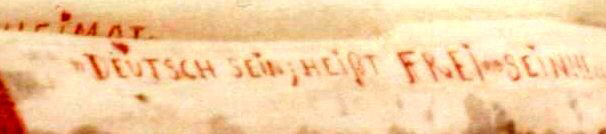 HEIMAT.
"DEUTSCH SEIN; HEIßT FREI SEIN!!!